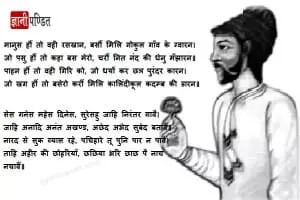 ज्ञानीपण्डित
मानुस हौं तो वही रसखान, बसौं मिलि गोकुल गाँव के ग्वारन।
जो पसु हौं तो कहा बस मेरो, चरौं नित नंद की धेनु मँझारन॥
पाहन हौं तो वही गिरि को, जो धर्यो कर छत्र पुरंदर कारन।
जो खग हौं तो बसेरो करौं मिलि कालिंदीकूल कदम्ब की डारन॥
सेस गनेस महेस दिनेस, सुरेसहु जाहि निरंतर गावै।
जाहि अनादि अनंत अखण्ड, अछेद अभेद सुबेद बतावै॥
नारद से सुक व्यास रहे, पचिहारे तू पुनि पार न पावै।
ताहि अहीर की छोहरियाँ, छछिया भरि छाछ पै नाच
नचावैं॥